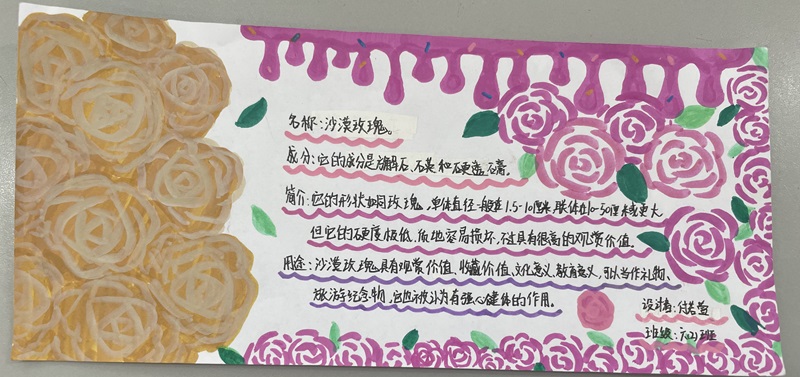 名称:沙漠玫瑰。
成分:它的成分是方解石、石英和硬透石膏。
简介:它的形状如同玫瑰,单体直径一般在1.5-10厘米,联体在10-50厘米或更大
但它的硬度极低,很容易损坏,不过具有很高的观赏价值。
用途:沙漠玫瑰具有观赏价值、收藏价值、文化意义、教育意义,可以当作礼物、
旅游纪念物,它也被认为有强心健体的作用。
设计者:
班级: